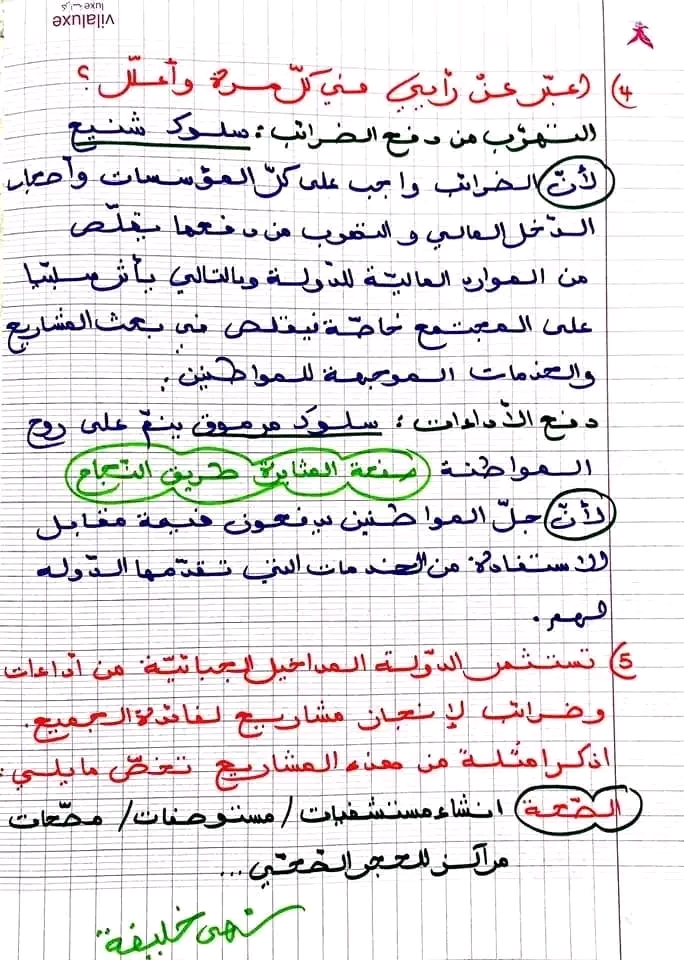 vilaluxe
luxe
4) أعبّر عن رأيي في كلّ مرة وأعلّل ؟
التهرّب من دفع الضرائب : سلوك شنيع
لأنّ الضرائب واجب على كلّ المؤسسات وأصحاب
الدّخل المالي و التهرب من دفعها يقلّص
من الموارد الماليّة للدّولة وبالتالي يأثر سلبيّا
على المجتمع خاصّة فيقلص في بعث المشاريع
والخدمات الموجهة للمواطنين .
دفع الأداءات : سلوك مرموق ينمّ على روح
المواطنة صفحة المثابرة طريق النجاح
لأنّ جلّ المواطنين يدفعون قيمة مقابل
الاستفادة من الخدمات التي تقدّمها الدّولة
لهم .
5) تستثمر الدّولة المداخيل الجبائيّة من أداءات
وضرائب لإنجاز مشاريع لفائدة الجميع .
اذكر أمثلة من هذه المشاريع تخصّ مايلي :
الصّحة انشاء مستشفيات / مستوصفات / مصّحات
مراكز للحجر الصّحّي ...
نهى خليفة